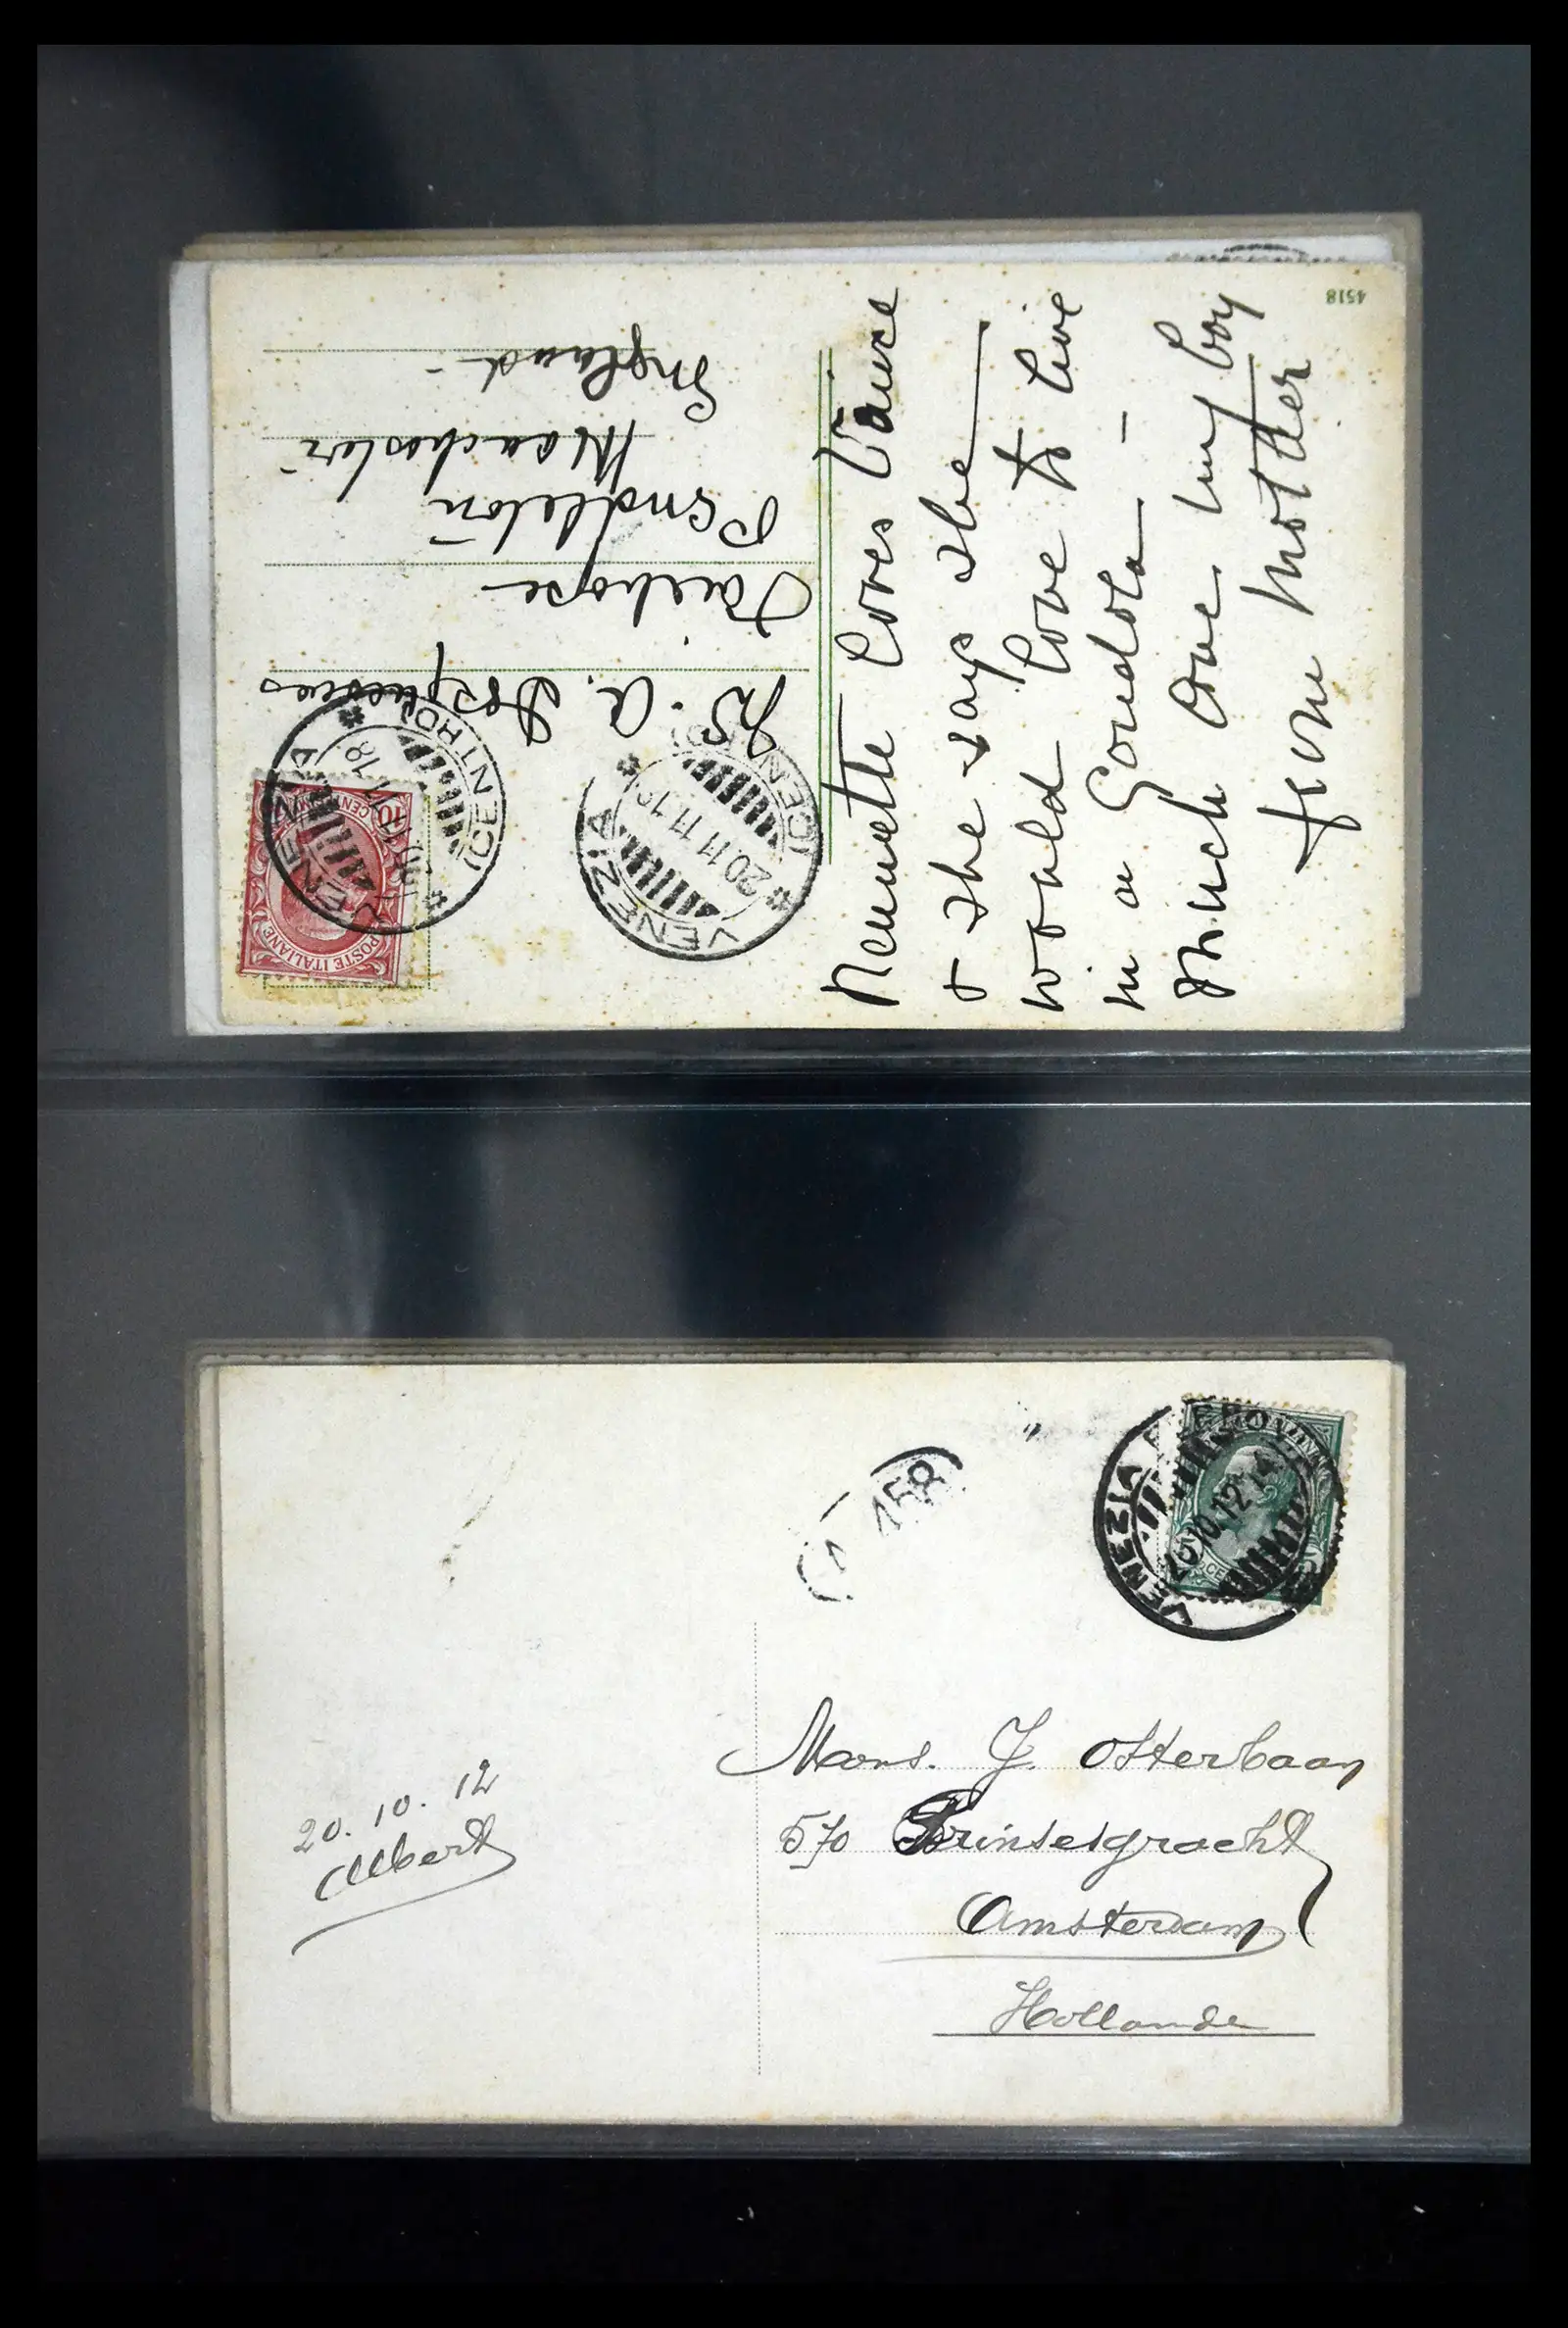 4518
Nannette loves Venice
& she says she
would love to live
in a Gondola —
Much love my boy
from Mother
A. Desquesnes
Fairhope
Pendleton
Manchester
England
POSTE ITALIANE
10 CENT
VENEZIA
(CENTRO)
11.18
VENEZIA
(CENT
20.11.11.18
VENEZIA FERROVIA
20.10.12.14
458
20.10.12
Albert
Mons. J. Osterbaan
570 Prinsesgracht
Amsterdam
Hollande